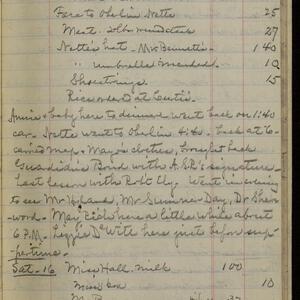 Fare to Oberlin Nette 25
Meat. 2lbs 27
Nette's hat - Mrs Bennetts - 1 40
" umbrella mended. 10
Shoestrings. 15
Rice order at Curtis.
Annie & baby here to dinner went back on 1:40
car - Nette went to Oberlin 4:40. back at 6 -
carried May's clothes, brought back
Guardian's Bond with A.E.R's signature -
Last lesson with Robt Ely. Went in evening
to see Mr , Mr Sumner Day, Dr Sher-
wood - May Rich here a little while about
6 P.M. Lizzie DeWitt here just before sup-
per time.
Sat. 16 Miss Hall. milk 1 00
Miss 10